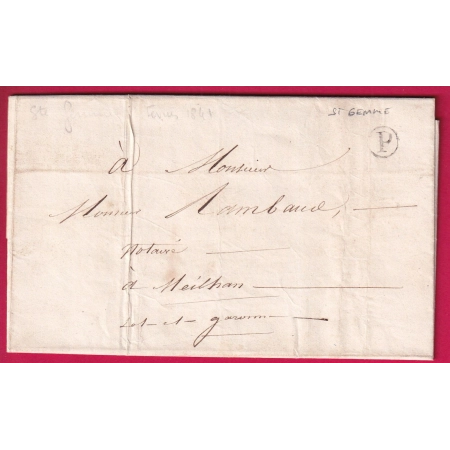 St GEMME
P
à Monsieur
Monsieur Rambaud,
Notaire
à Meilhan
Lot-et-garonne